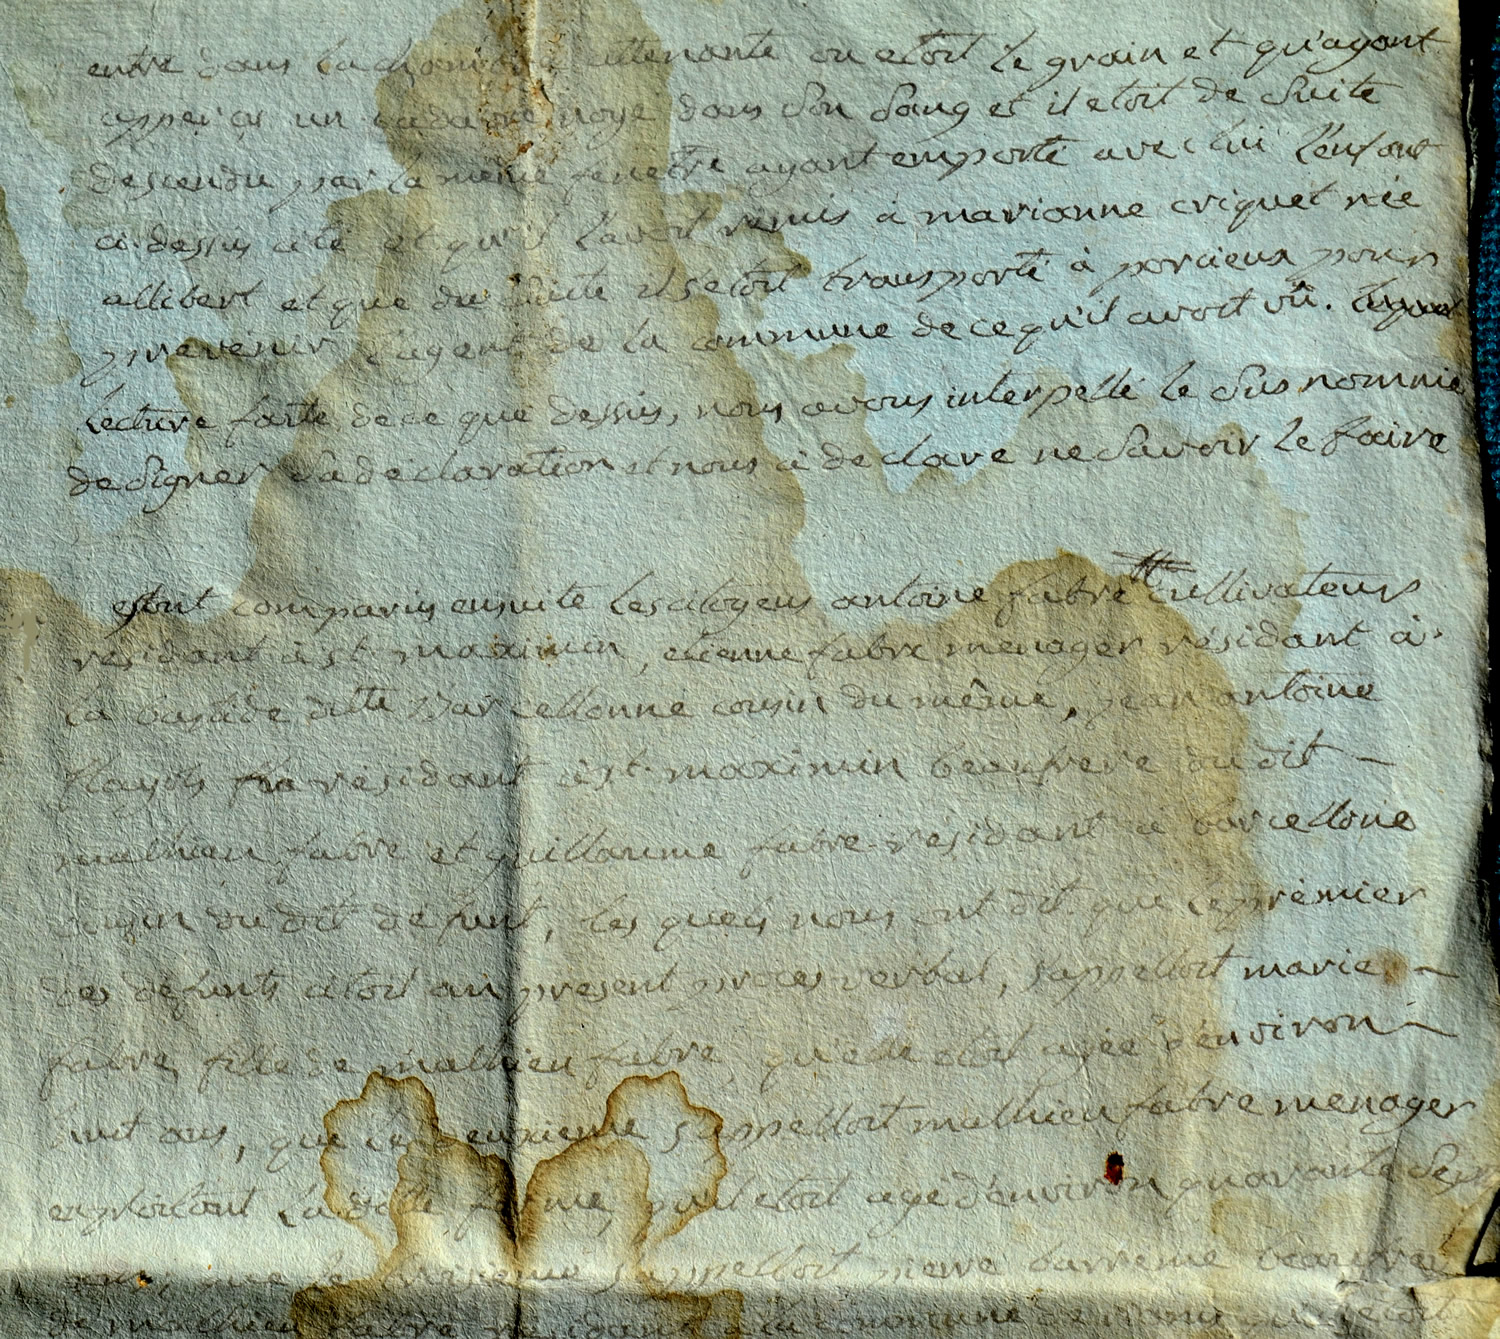 entre dans la chambre attenante ou etoit le grain et qu'ayant
apperçu un cadavre noyé dans son sang et il etoit de suite
descendu par la même fenetre ayant emporté avec lui l'enfant
ci dessus cité et qu'il l'avoit remis à marianne criquet née
allibert et que du suite il s'etoit transporté à porcieux pour
prevenir l'agent de la commune de ce qu'il avoit vû.
lecture faite de ce que dessus, nous avons interpellé le susnommé
de signer sa déclaration et nous à declare ne savoir le faire
estant comparus ensuite les citoyens antoine fabre cultivateurs
résidant à st maximin, etienne fabre menager résidant à
la bastide ditte Barcellonne cousin du même, jean antoine
résidant à st maximin beaufrere du dit
mathieu fabre et guillaume fabre résidant à barcellone
cousin du dit defunt, les quels nous ont dit que le prémier
des défunts citoit au present procès verbal, s'appelloit marie
fabre fille de mathieu fabre, qu'elle etoit agée d'environ
huit ans, que le deuxieme s'appelloit mathieu fabre menager
exploitant la ditte ferme, qu'il etoit agé d'environ quarante sept
ans, que le troisieme s'appelloit pierre barreme beaufrere
de mathieu fabre résidant à la commune de qu'il etoit